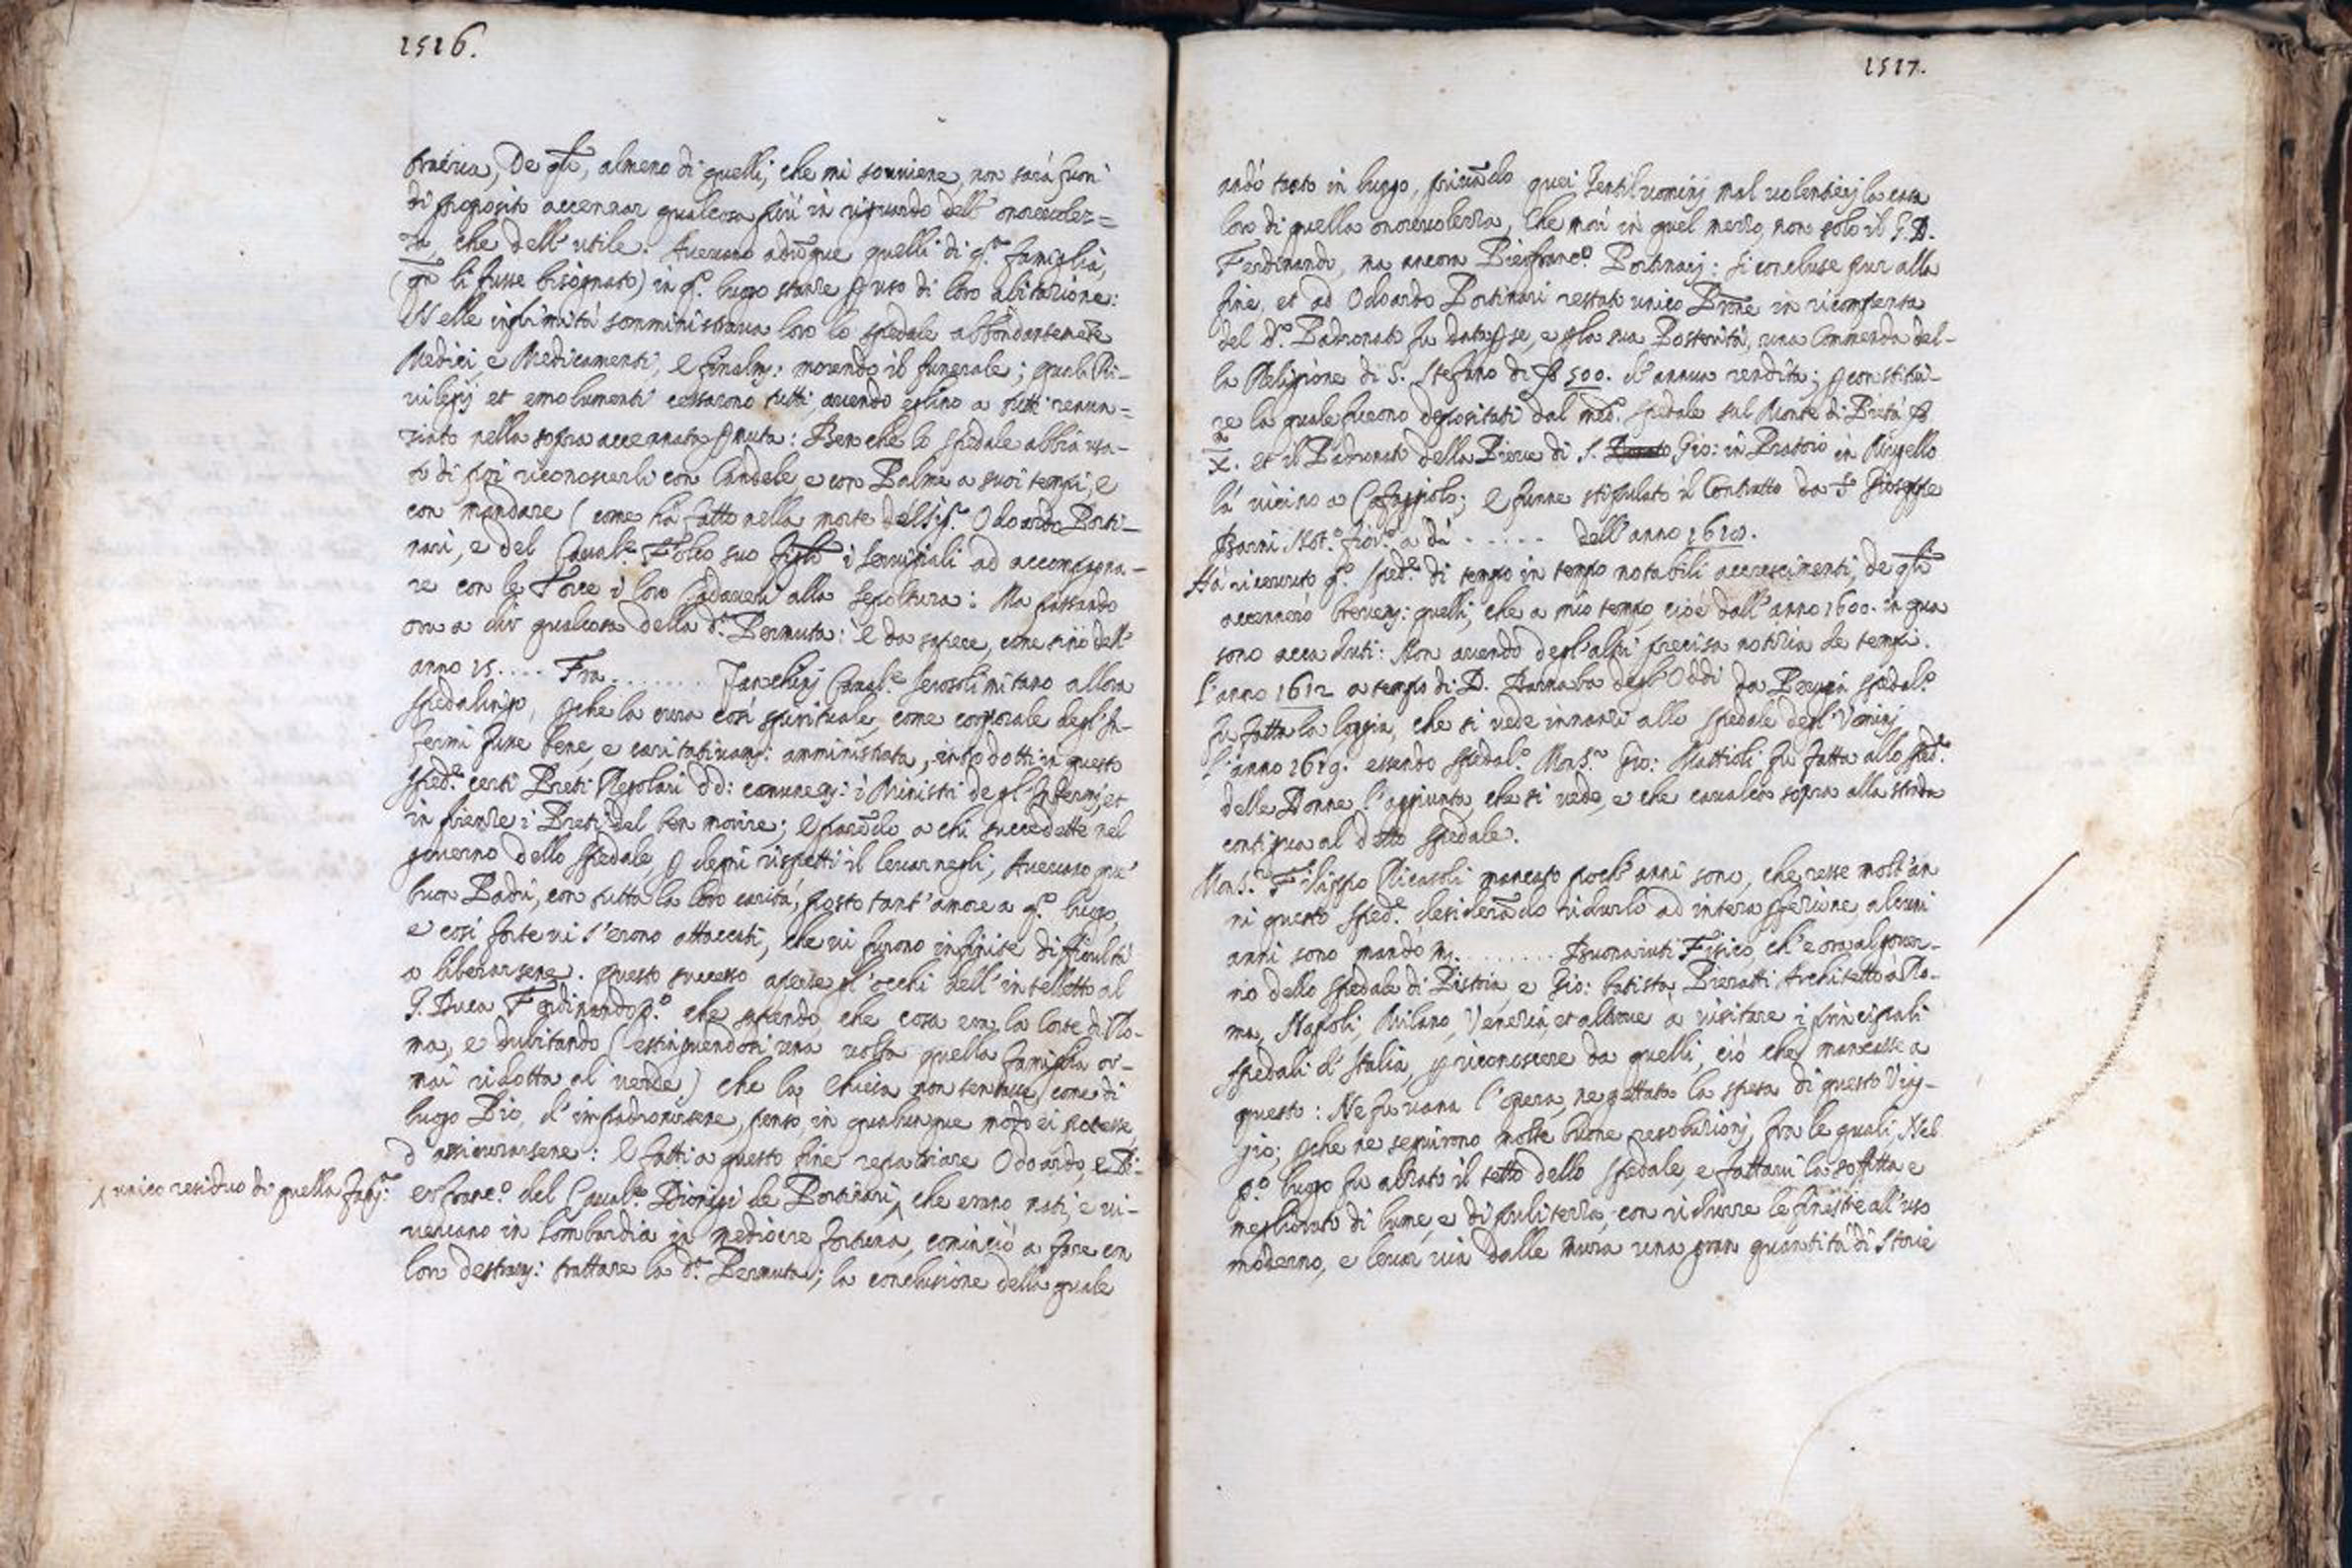 1516.
de qli, almeno di quelli, che mi souuiene, non sarà fuori
di proposito accennar qualcosa più in riguardo dell' onoreuolez=
za, che dell' utile. Aueuano adūque quelli di q.ª famiglia,
(qñ li fusse bisognato) in q.º luogo stanze p uso di loro abitazione:
Nelle infirmità somministraua loro lo spedale abbondantemēte
Medici, e Medicamenti, e finalm: morendo il funerale; quali Pri-
uilegij et emolumenti cessarono tutti, auendo eglino a tutti renun=
ziato nella sopra accennata pmuta: Benche lo spedale abbia usa-
to di poi riconoscerli con Candele e con Palme a suoi tempi, e
con mandare (come hà fatto nella morte del Sig.r Odoardo Porti-
nari, e del Caual.e Folco suo figlo i seruigiali ad accompagna-
re con le Torce i loro Cadaueri alla sepoltura: Ma passando
ora a dir qualcosa della d.ª Permuta: è da sapere, come sino dell'
anno 15.... Fra ........ Jacchinj Caual.e Gerosolimitano allora
spedalingo, pche la cura così spirituale, come corporale degl' In-
fermi fusse bene, e caritatiuam: amministrata, introdotti in questo
sped.e certi Preti Regolari dd: comunem: i Ministri degl' Infermi, et
in firenze i Preti del ben morire; e parēdo a chi succedette nel
gouerno dello spedale, p degni rispetti il leuarnegli, Aueuano que'
buon Padri, con tutta la loro carità, posto tant' amore a q.º luogo,
e così forte ui s'erono attaccati, che ui furono infinite difficultà
a liberarsene. Questo successo aperse gl'occhi dell' intelletto al
G. Duca Ferdinando p.º che sapendo, che cosa era la Corte di Ro-
ma, e dubitando (estinguendosi una uolta quella famiglia or-
mai ridotta al uerde) che la Chiesa non tentasse, come di
luogo Pio, d' impadronirsene, pensò in qualunque modo ei potesse,
d' assicurarsene: e fatti a questo fine repatriare Odoardo, e Pi-
erfranc.º del Caual.e Dionigi de Portinari, ^ che erano nati, e ui-
^ unico residuo di quella fam.ª:
ueuano in Lombardia in mediocre fortuna, cominciò a fare con
loro destram: trattare la d.ª Permuta; la conclusione della quale
1517.
andò tanto in lungo, priuādo quei Gentiluominj mal uolentierj la casa
loro di quella onoreuolezza, che morì in quel mezzo, non solo il G. D.
Ferdinando, ma ancora Pierfranc.º Portinarj: Si concluse pur alla
fine, et ad Odoardo Portinari restato unico Prone in ricompensa
del d.º Padronato fu data p se, e p la sua Posterità, una Commenda del-
la Religione di S. Stefano di 500. d'annua rendita; p constitui-
re la quale furono depositati dal med.º spedale sul Monte di Pietà
X. et il Padronato della Pieue di S. Gio: in Pratoio in Mugello
là uicino a Cafaggiolo; e funne stipulato il Contratto da Gioseppe
Barni Not.º fior.º a dì ..... dell'anno 1618.
Hà riceuuto q.º sped.e di tempo in tempo notabili accrescimenti, de qli
accennerò breuem: quelli, che a mio tempo, cioè dall' anno 1600. in qua
sono accaduti: Non auendo degl'altri precisa notizia de tempi.
l'anno 1612 a tempo di D. Barnaba degl' Oddi da Perugia spedal.º
fu fatta la loggia, che si uede innanzi allo spedale degl' Uominj
l'anno 1619. essendo spedal.º Mons.r Gio: Mattioli fu fatta allo sped.e
delle Donne l'aggiunta, che si uede, e che caualca sopra alla strada
contigua al detto spedale.
Mons.r Filippo Ricasoli mancato poch' anni sono, che resse molt'an
ni questo sped.e desiderādo ridurlo ad intera pfezione, alcuni
anni sono mandò m. ........ Buonaiuti Fisico, ch' è ora al gouer-
no dello spedale di Pistoia, e Gio: batista Pieratti Architetto à Ro-
ma, Napoli, Milano, Venezia, et altroue à uisitare i principali
spedali d' Italia, p riconoscere da quelli, ciò che mancasse a
questo: Ne fu uana l' opera, ne gettata la spesa di questo Viag-
gio; pche ne seguirono molte buone resoluzionj, fra le quali, Nel
p.º luogo fu alzato il tetto dello spedale, e fattaui la soffitta e
megliorato di lume, e di pulitezza, con ridurre le finestre all' uso
moderno, e leuar uia dalle mura una gran quantità di Storie